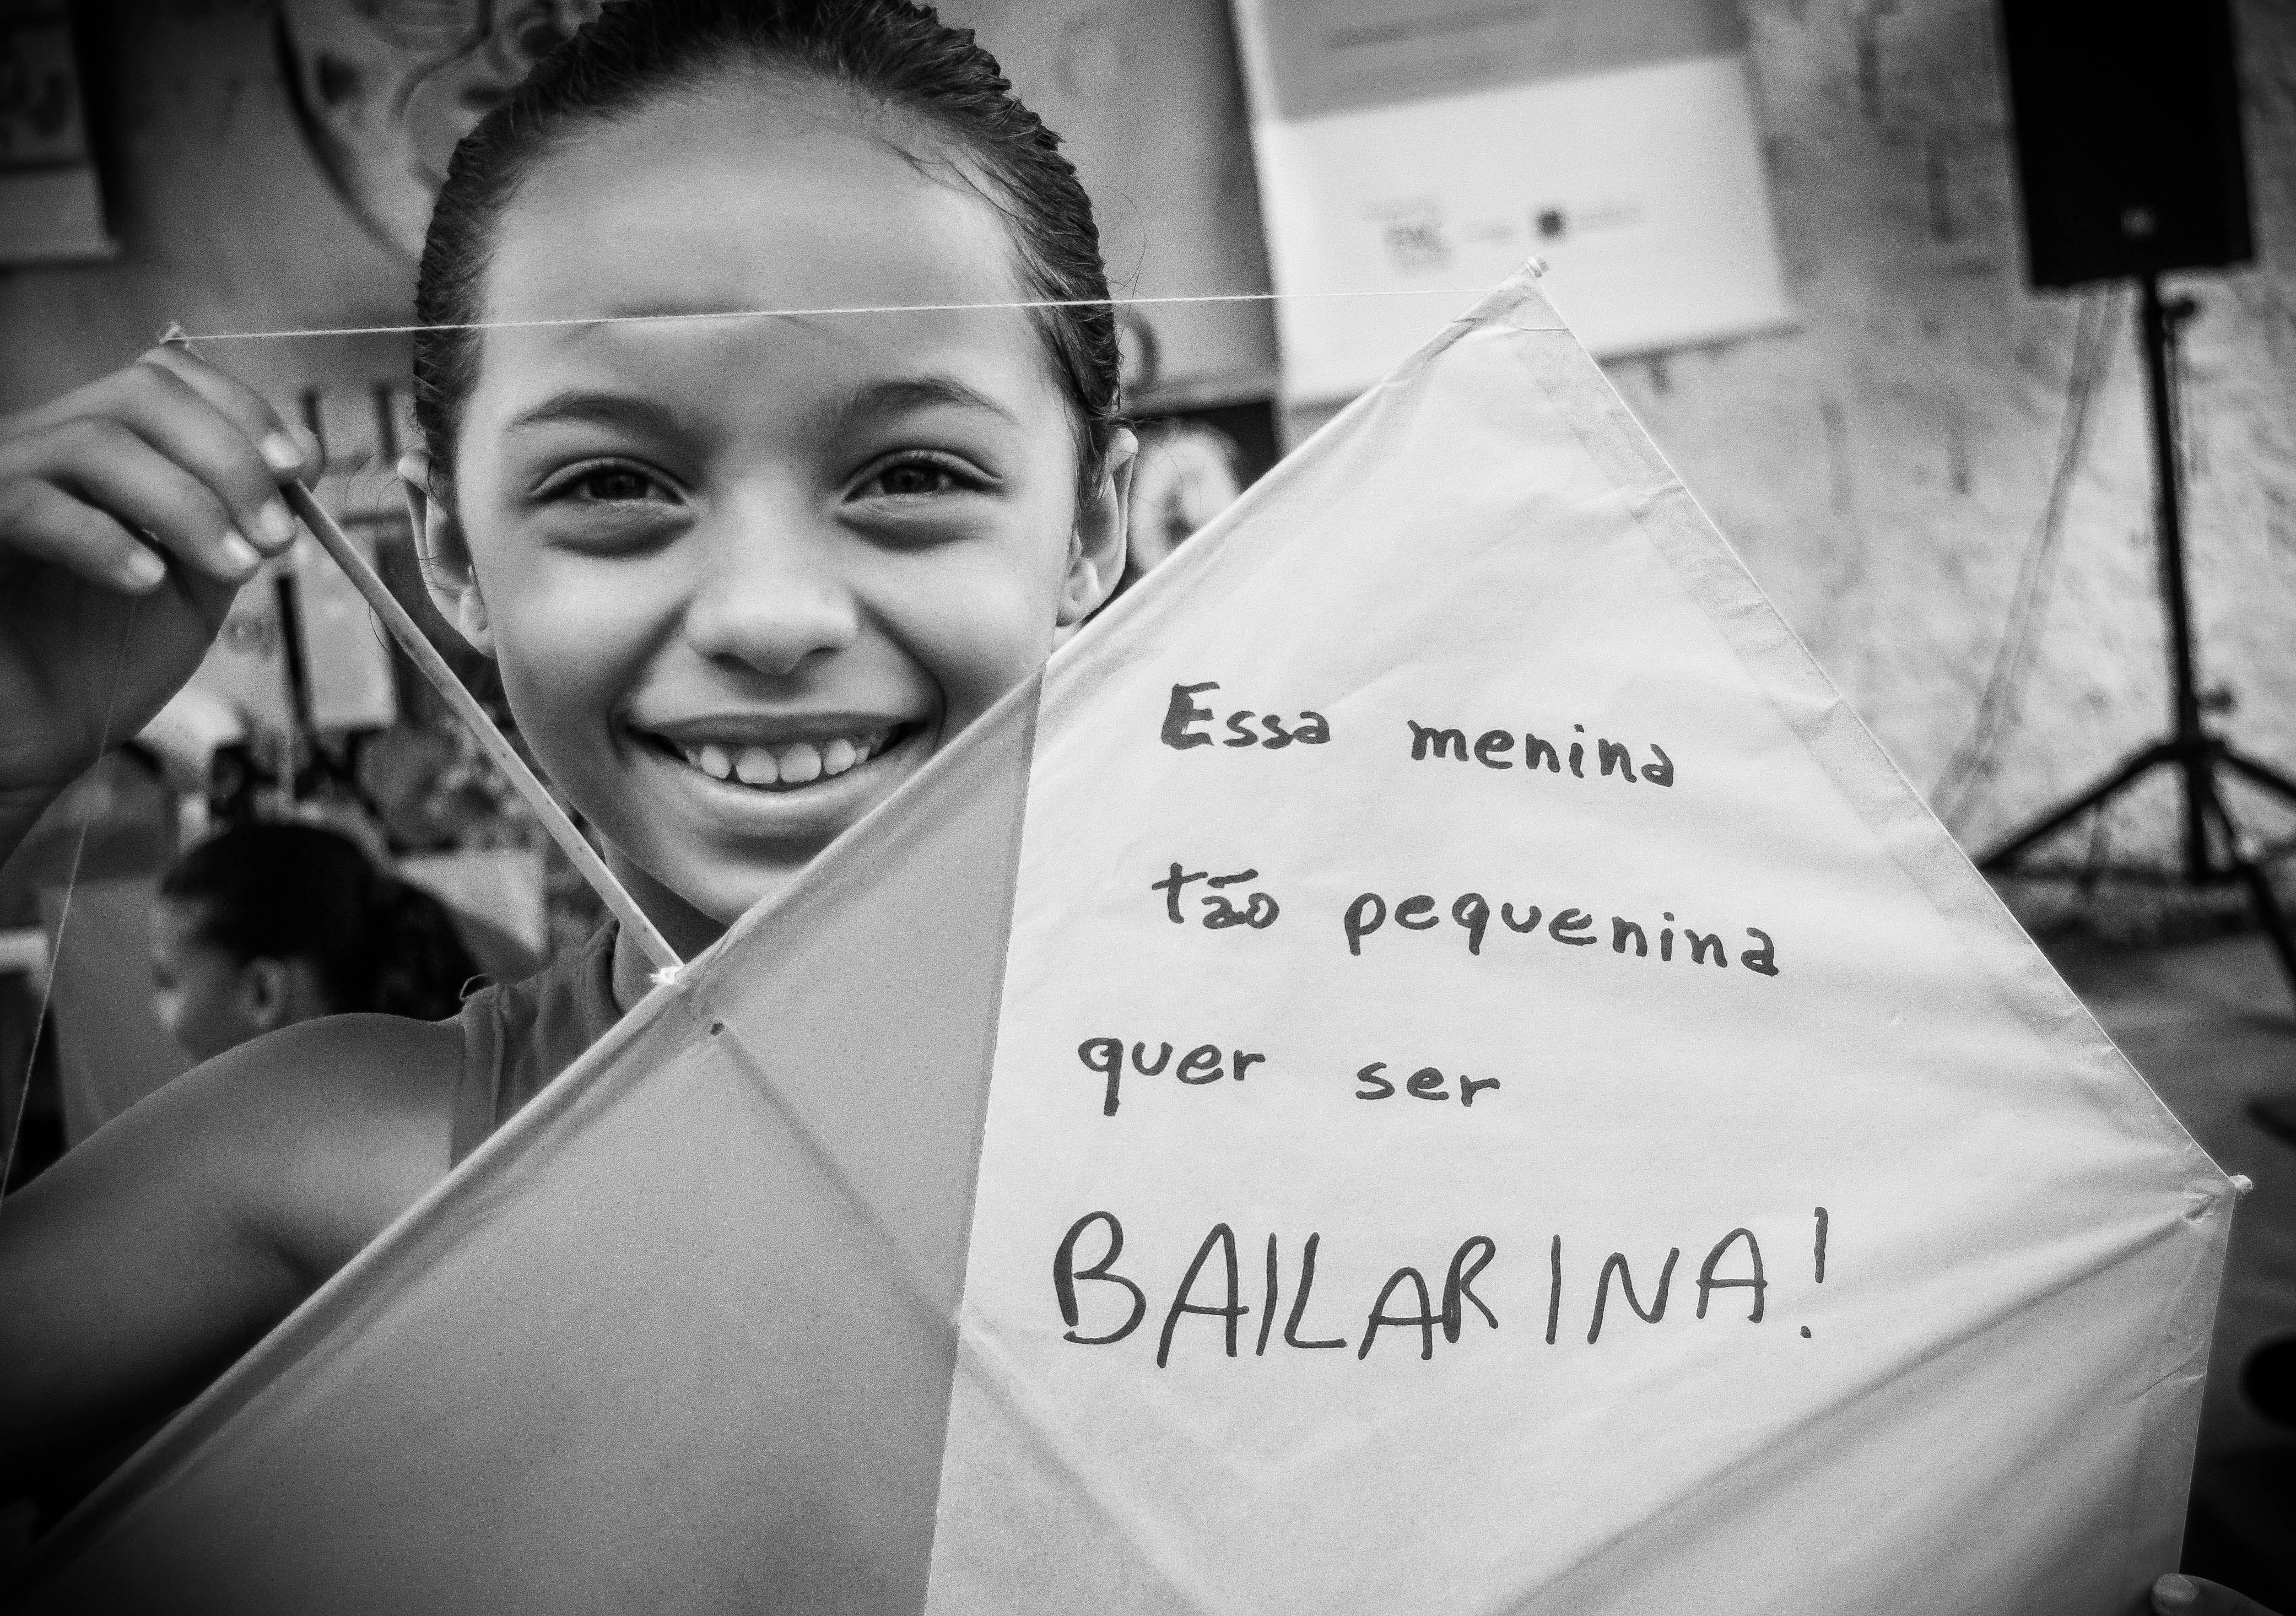 Essa menina
tão pequenina
quer ser
BAILARINA!